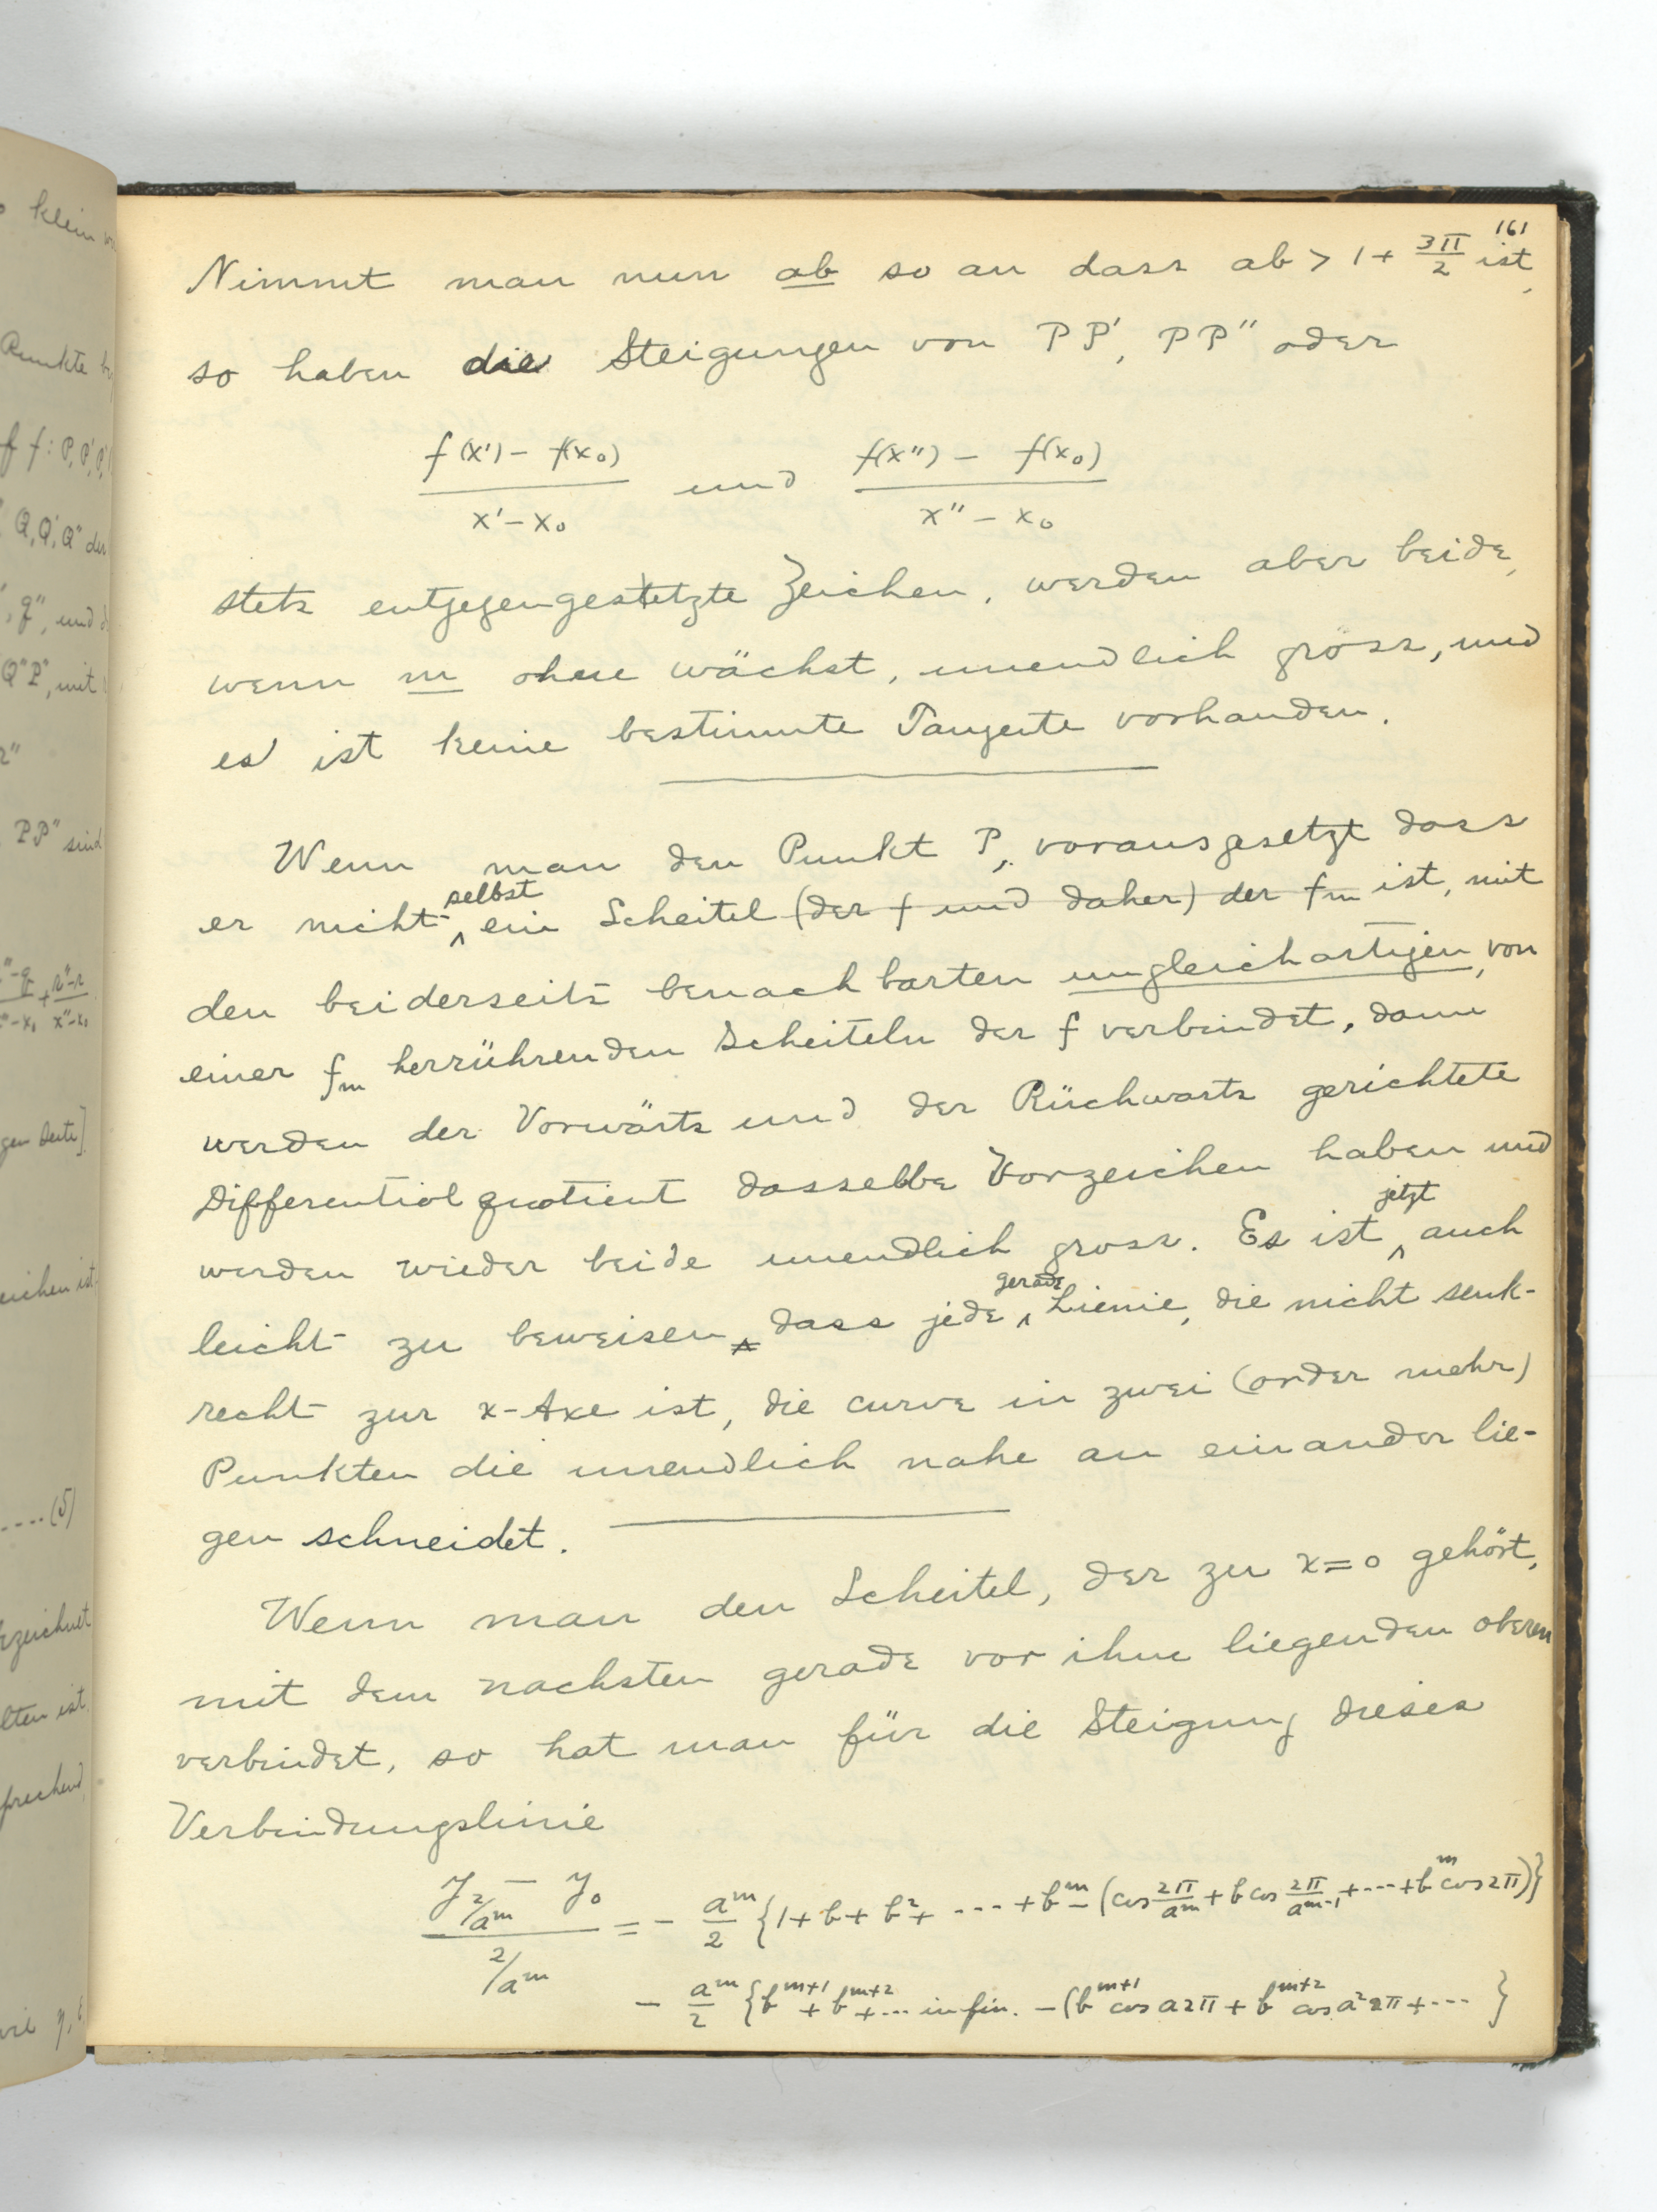 161
Nimmt man nun ab so an dass ab > 1 + 3π/2 ist,
so haben die Steigungen von PP', PP'' oder
(f(x') - f(x₀))/(x' - x₀) und (f(x'') - f(x₀))/(x'' - x₀)
stets entgegengesetzte Zeichen, werden aber beide,
wenn m ohne wächst, unendlich gross, und
es ist keine bestimmte Tangente vorhanden.
Wenn man den Punkt P, vorausgesetzt dass
er nicht selbst ein Scheitel (der f und daher) der fm ist, mit
den beiderseits benachbarten ungleichartigen, von
einer fm herrührenden Scheiteln der f verbindet, dann
werden der Vorwärts und der Rüchwarts gerichtete
Differentialquotient dasselbe Vorzeichen haben und
werden wieder beide unendlich gross. Es ist jetzt auch
leicht zu beweisen, dass jede gerade Lienie, die nicht senk-
recht zur x-Axe ist, die curve in zwei (order mehr)
Punkten die unendlich nahe an einander lie-
gen schneidet.
Wenn man den Scheitel, der zu x=0 gehört,
mit dem nachsten gerade vor ihm liegenden oberen
verbindet, so hat man für die Steigung dieses
Verbindungslinie
(y_{2/a^m} - y₀)/(2/a^m) = - a^m/2 {1 + b + b² + --- + b^m - (cos 2π/a^m + b cos 2π/a^{m-1} + --- + b^m cos 2π)}
- a^m/2 {b^{m+1} + b^{m+2} + --- in fin. - (b^{m+1} cos a2π + b^{m+2} cos a²2π + --- }
klein
Punkte
f f: P, P', P''
Q, Q', Q'' der
q'', und
Q''P'', mit
r''
PP'' sind
''-q/''-x₀ + r''-r/x''-x₀
gen Seite]
eichen ist.
----(5)
ezeichnet
lten ist,
sprechend,